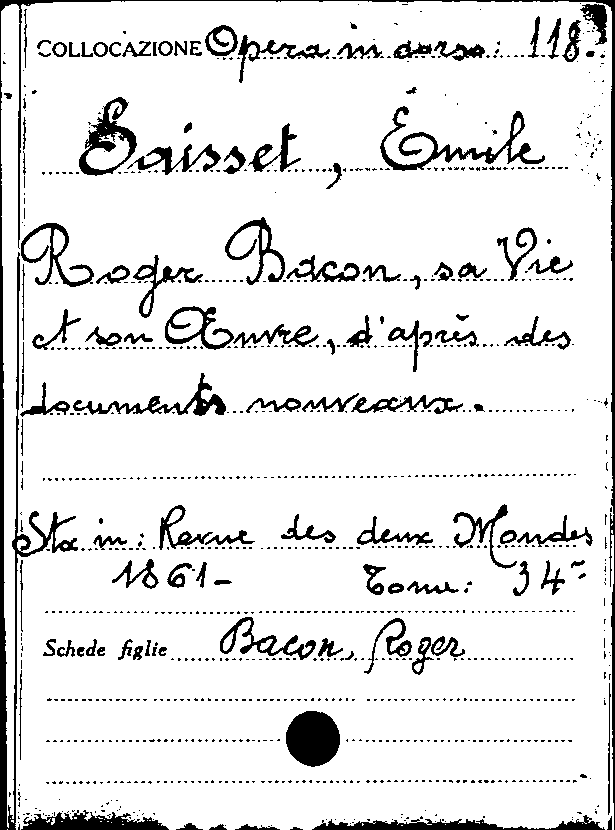 COLLOCAZIONE Opera in corso: 118.
Saisset, Émile
Roger Bacon, sa Vie
et son Œuvre, d'après des
documents nouveaux.
Sta in: Revue des deux Mondes
1861- Tome: 34-
Schede figlie Bacon, Roger